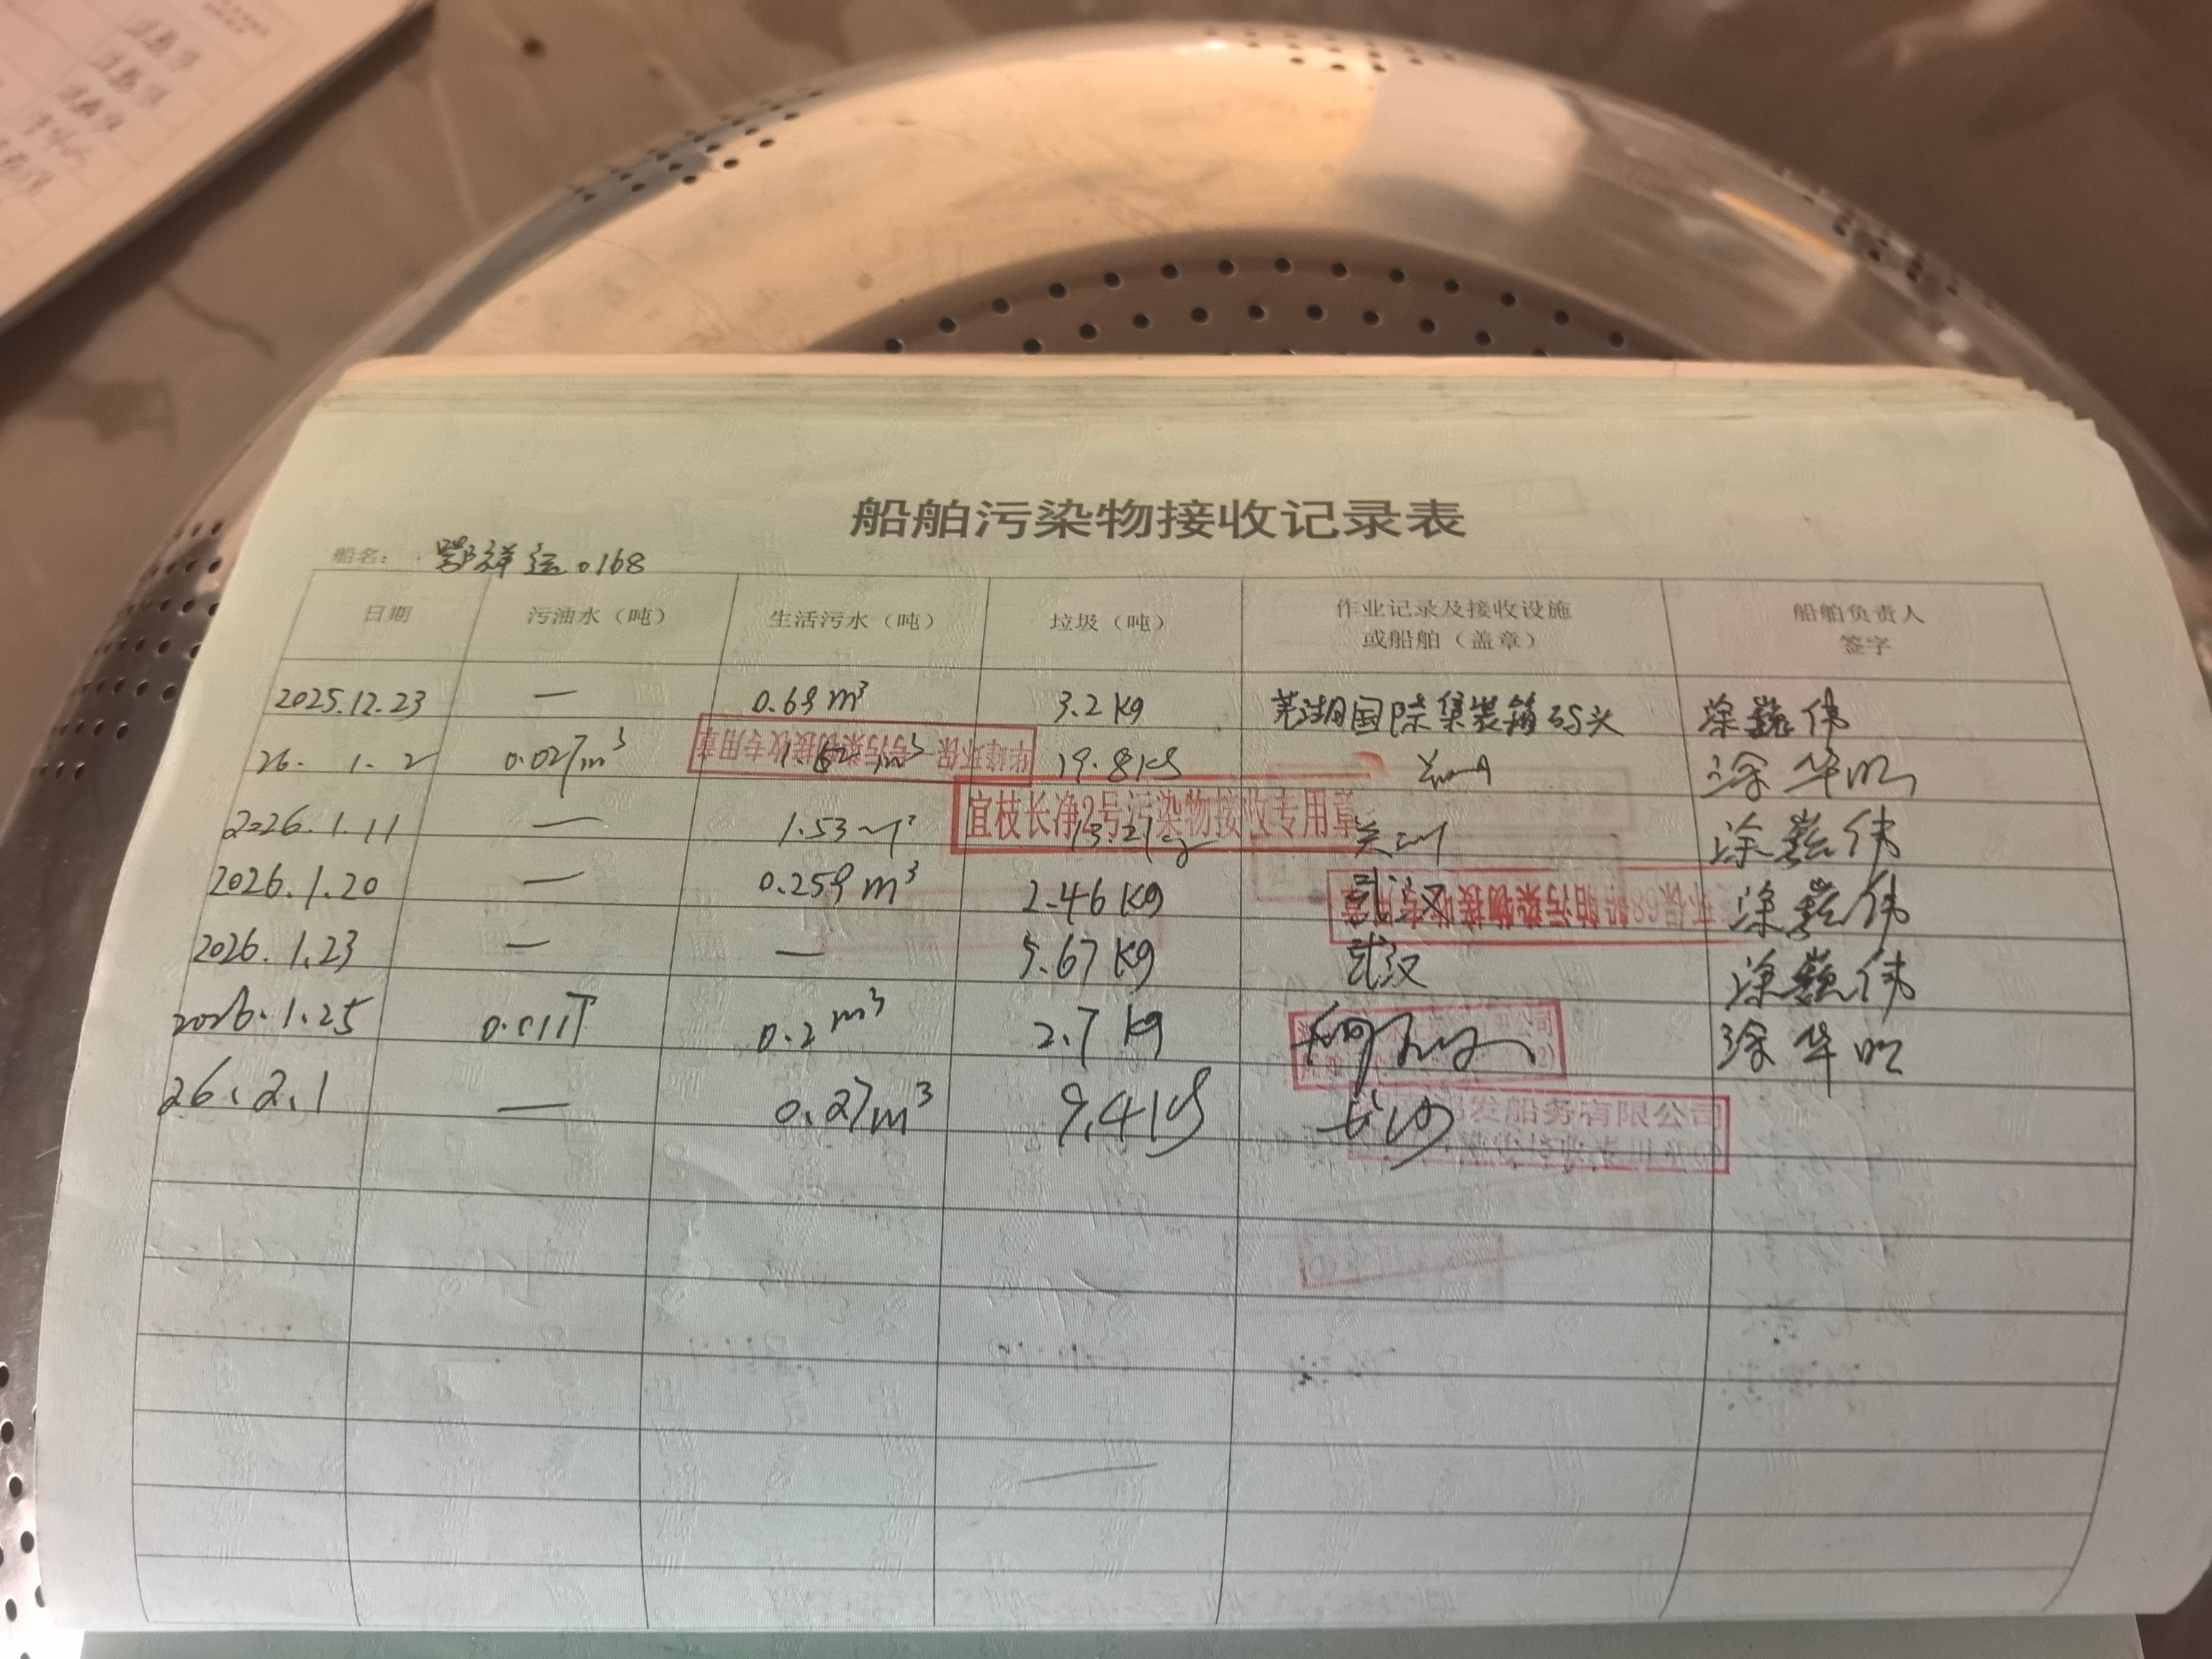 船舶污染物接收记录表
船名： 鄂祥运0168
日期 污油水（吨） 生活污水（吨） 垃圾（吨） 作业记录及接收设施或船舶（盖章） 船舶负责人签字
2025.12.23 — 0.69 m³ 3.2 kg 芜湖国际集装箱码头 涂巍伟
26. 1. 2 0.027m³ 1.62 m³ 19.8kg 涂华明
华峰环保一号污染物接收专用章
宜枝长净2号污染物接收专用章
2026.1.11 — 1.53 m³ 13.2kg 涂巍伟
2026.1.20 — 0.259 m³ 2.46 kg 武汉 涂巍伟
环保68船舶污染物接收专用章
2026.1.23 — — 5.67 kg 武汉 涂巍伟
2026.1.25 0.011T 0.2 m³ 2.7 kg 涂华明
26.2.1 — 0.27m³ 9.4kg 长沙
发船务有限公司